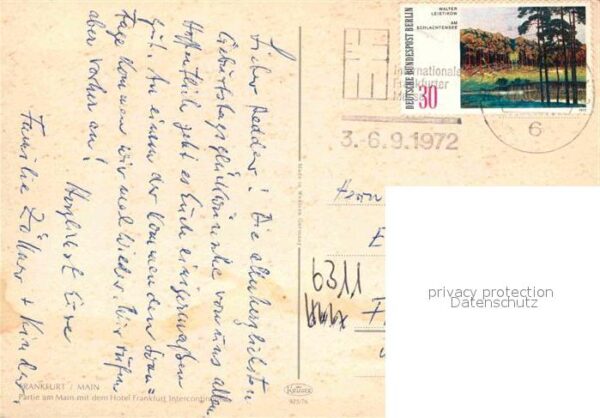 Lieber Redder! Die allerherzlichsten
Geburtstagsglückwünsche von uns allen.
Hoffentlich geht es Euch einigermaßen
gut. An einem der kommenden Sonn=
tage kommen wir mal wieder. Wir rufen
aber vorher an!
Herzlichst Eure
Familie + Kinder.
WALTER
LEISTIKOW
AM
SCHLACHTENSEE
DEUTSCHE BUNDESPOST BERLIN
30
Internationale
Frankfurter
Messe
3.-6.9.1972
6
Made in Western Germany
Herrn
6311
privacy protection
Datenschutz
FRANKFURT / MAIN
Partie am Main mit dem Hotel Frankfurt Intercontinental
Krüger
925/76